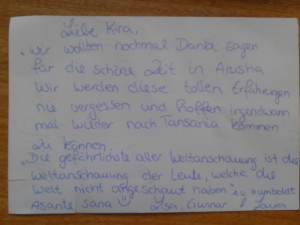 Liebe Kira,
wir wollten nochmal Danke sagen
für die schöne Zeit in Arusha
Wir werden diese tollen Erfahrungen
nie vergessen und hoffen irgendwann
mal wieder nach Tansania kommen
zu können.
"Die gefährlichste aller Weltanschauung ist die
Weltanschauung der Leute, welche die
Welt nicht angeschaut haben" Humboldt
Asante Sana Lisa, Gunnar & Laura